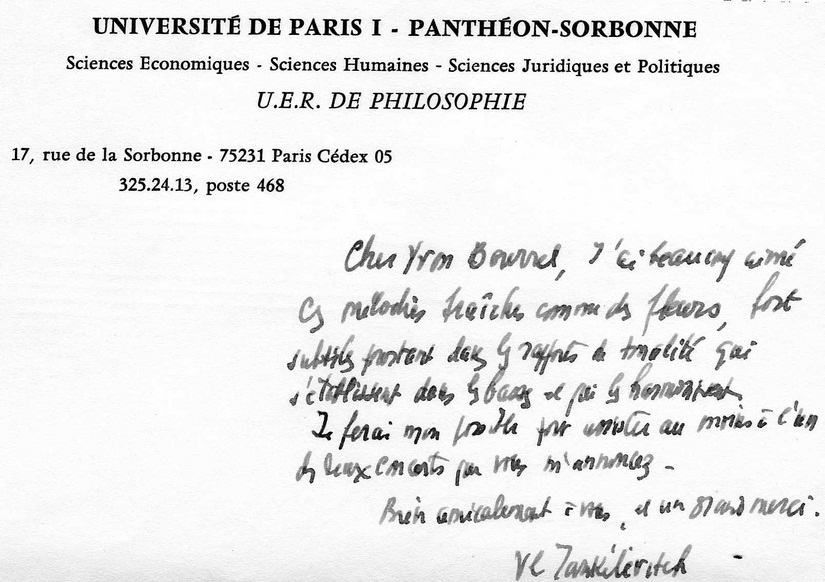 UNIVERSITÉ DE PARIS I - PANTHÉON-SORBONNE
Sciences Economiques - Sciences Humaines - Sciences Juridiques et Politiques
U.E.R. DE PHILOSOPHIE
17, rue de la Sorbonne - 75231 Paris Cédex 05
325.24.13, poste 468
Cher Yvon Bourrel, J'ai beaucoup aimé
ces mélodies fraîches comme des fleurs, fort
subtiles pourtant dans les rapports de tonalité qui
s'établissent dans les basses et qui les harmonisent.
Je ferai mon possible pour assister au moins à l'un
des deux concerts que vous m'annoncez -
Bien amicalement à vous, et un grand merci.
Vl Jankélévitch